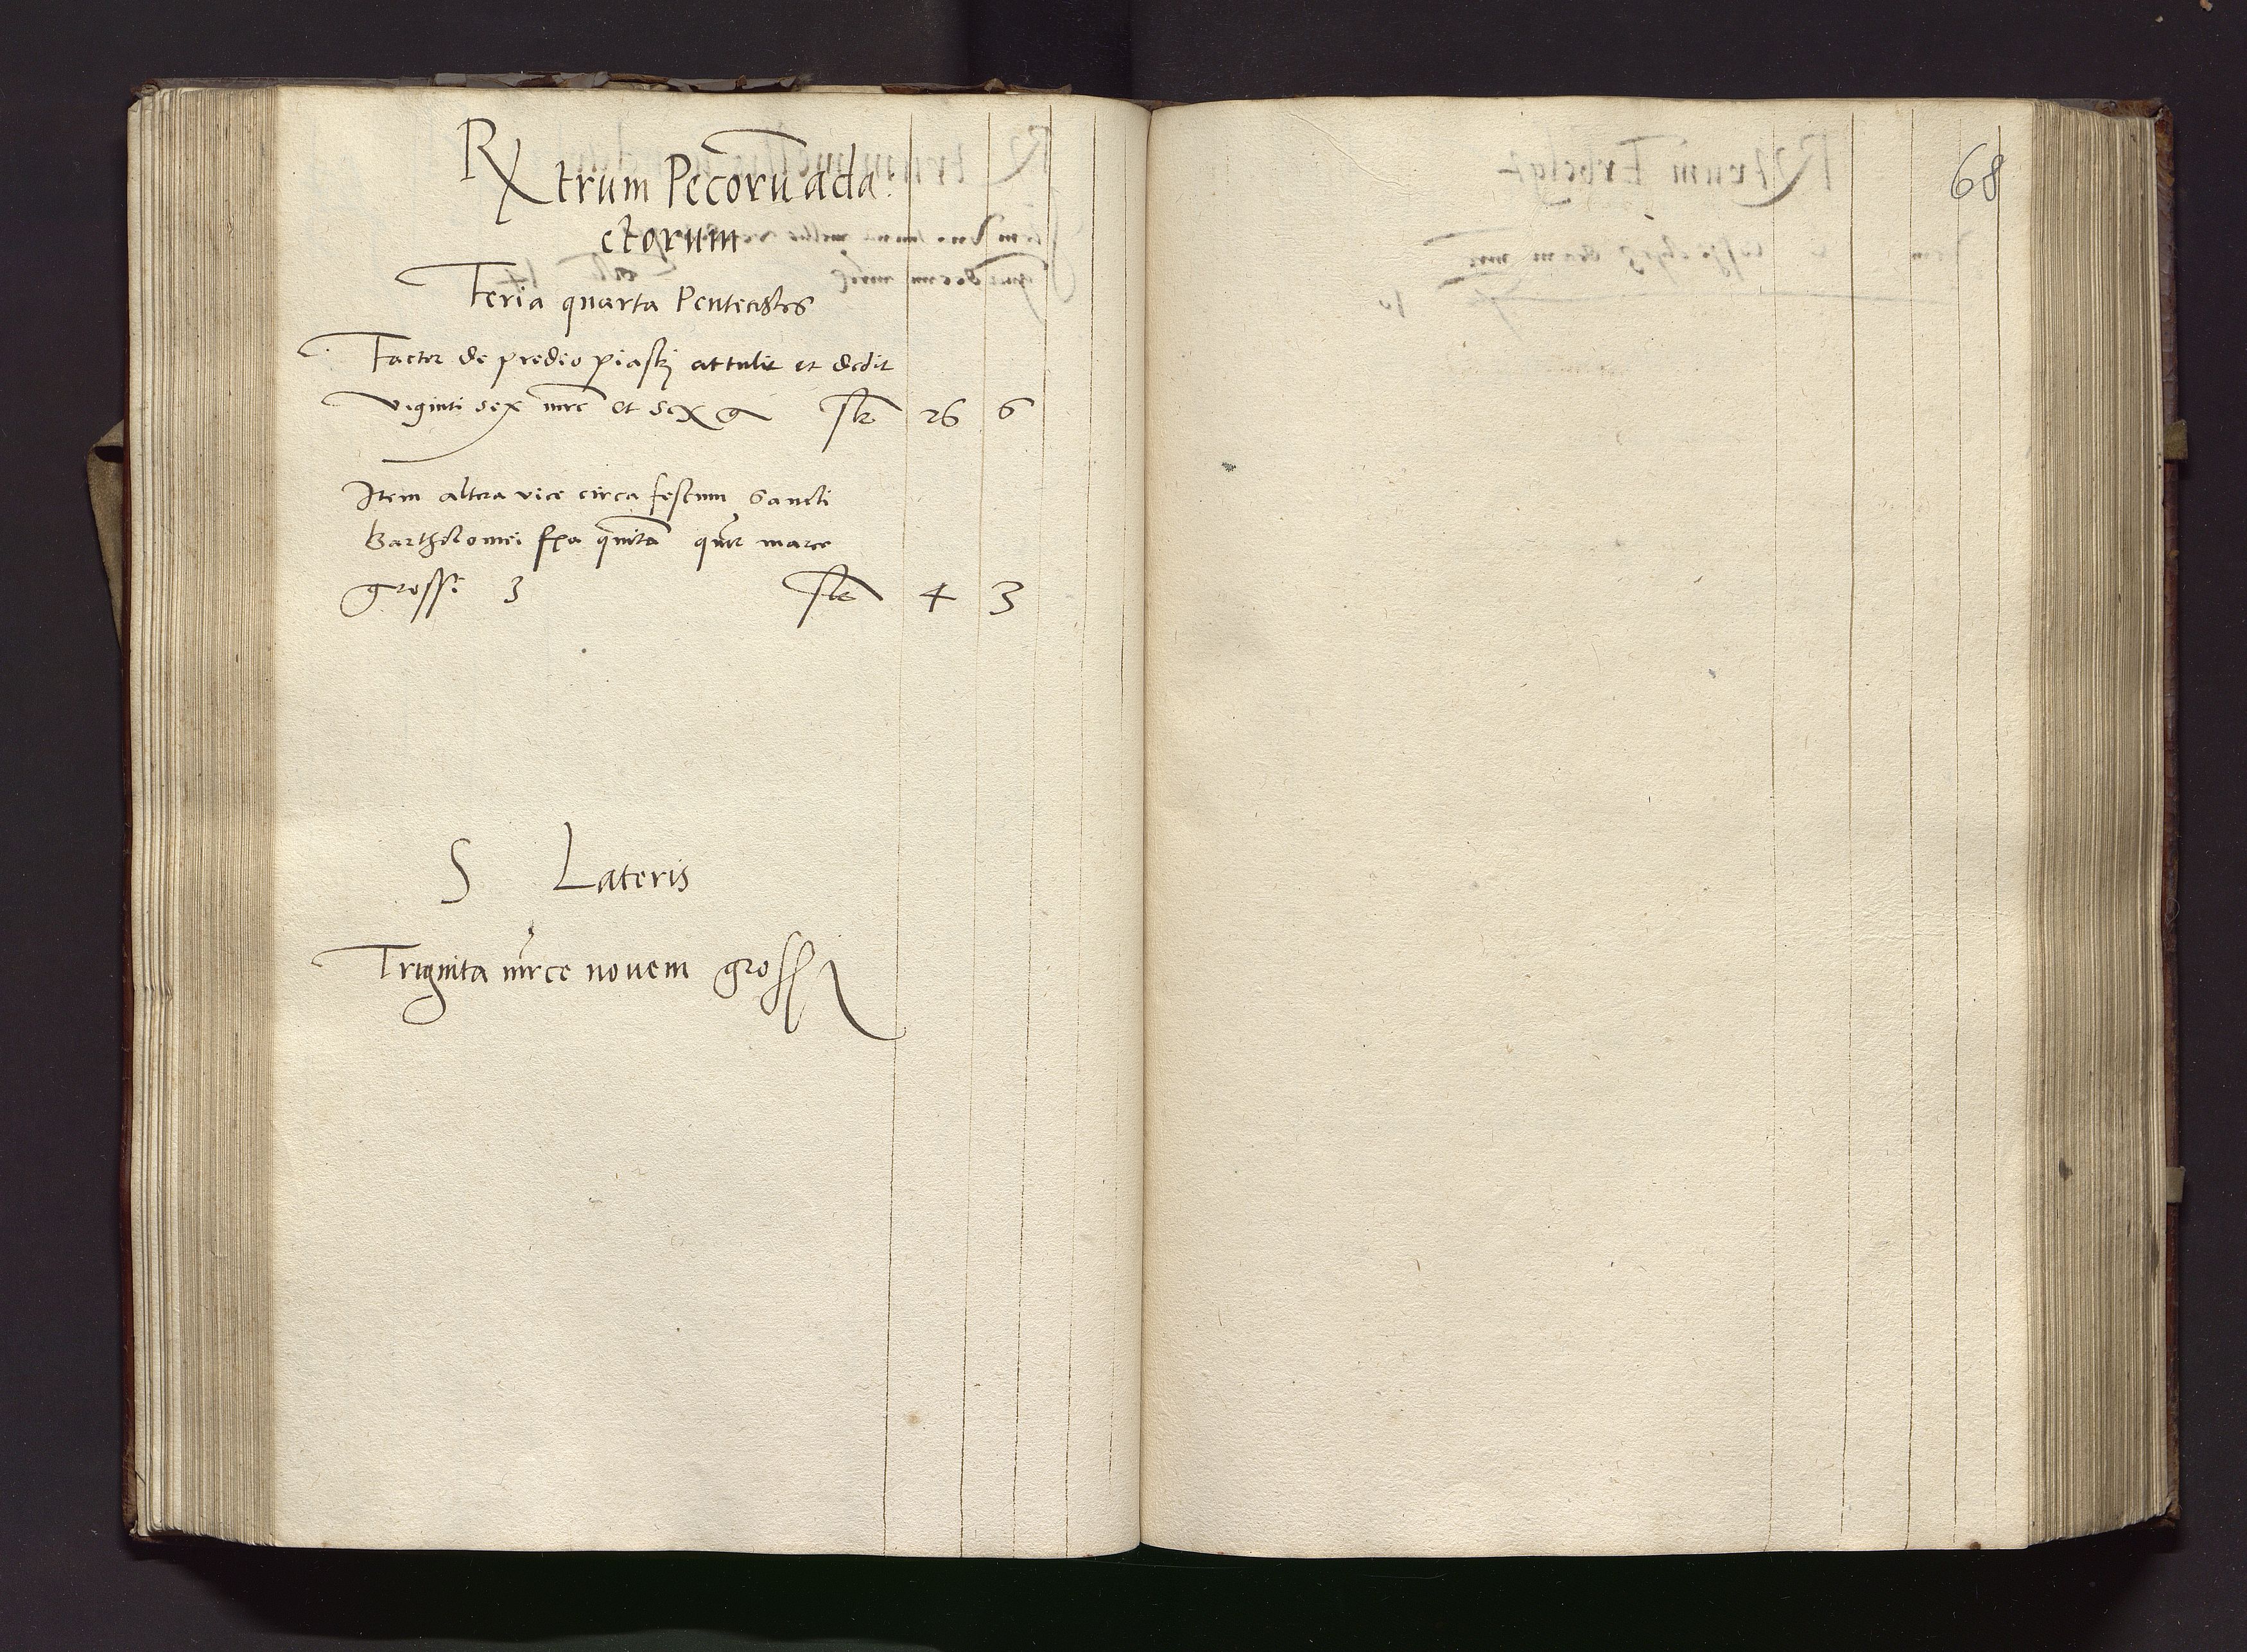 Rxtrum Pecorū ada
ctorum
Feria quarta Pentecostes
Factor de predio piaskj attulit et dedit
viginti sex mrc et sex g fl 26 6
Item altera vice circa festum Sancti
Bartholomei fra quīta qtuor marce
grossi 3 fl 4 3
S Lateris
Triginta mrce novem gross
68